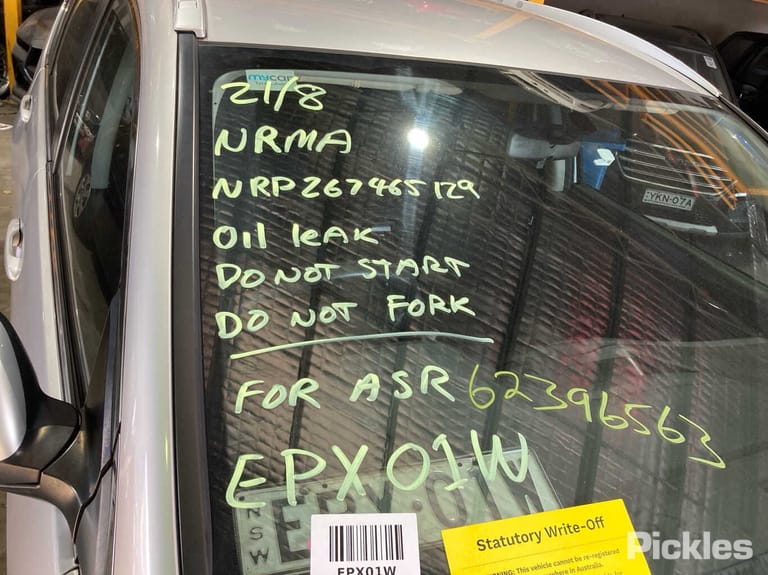 mycar
21/8
NRMA
NRP267465129
OIL leAK
DO NOT START
DO NOT FORK
FOR ASR 62396563
EPX01W
NSW
EPX 01W
EPX01W
Statutory Write-Off
WARNING: This vehicle cannot be re-registered
anywhere in Australia.
YKN·07A
Pickles